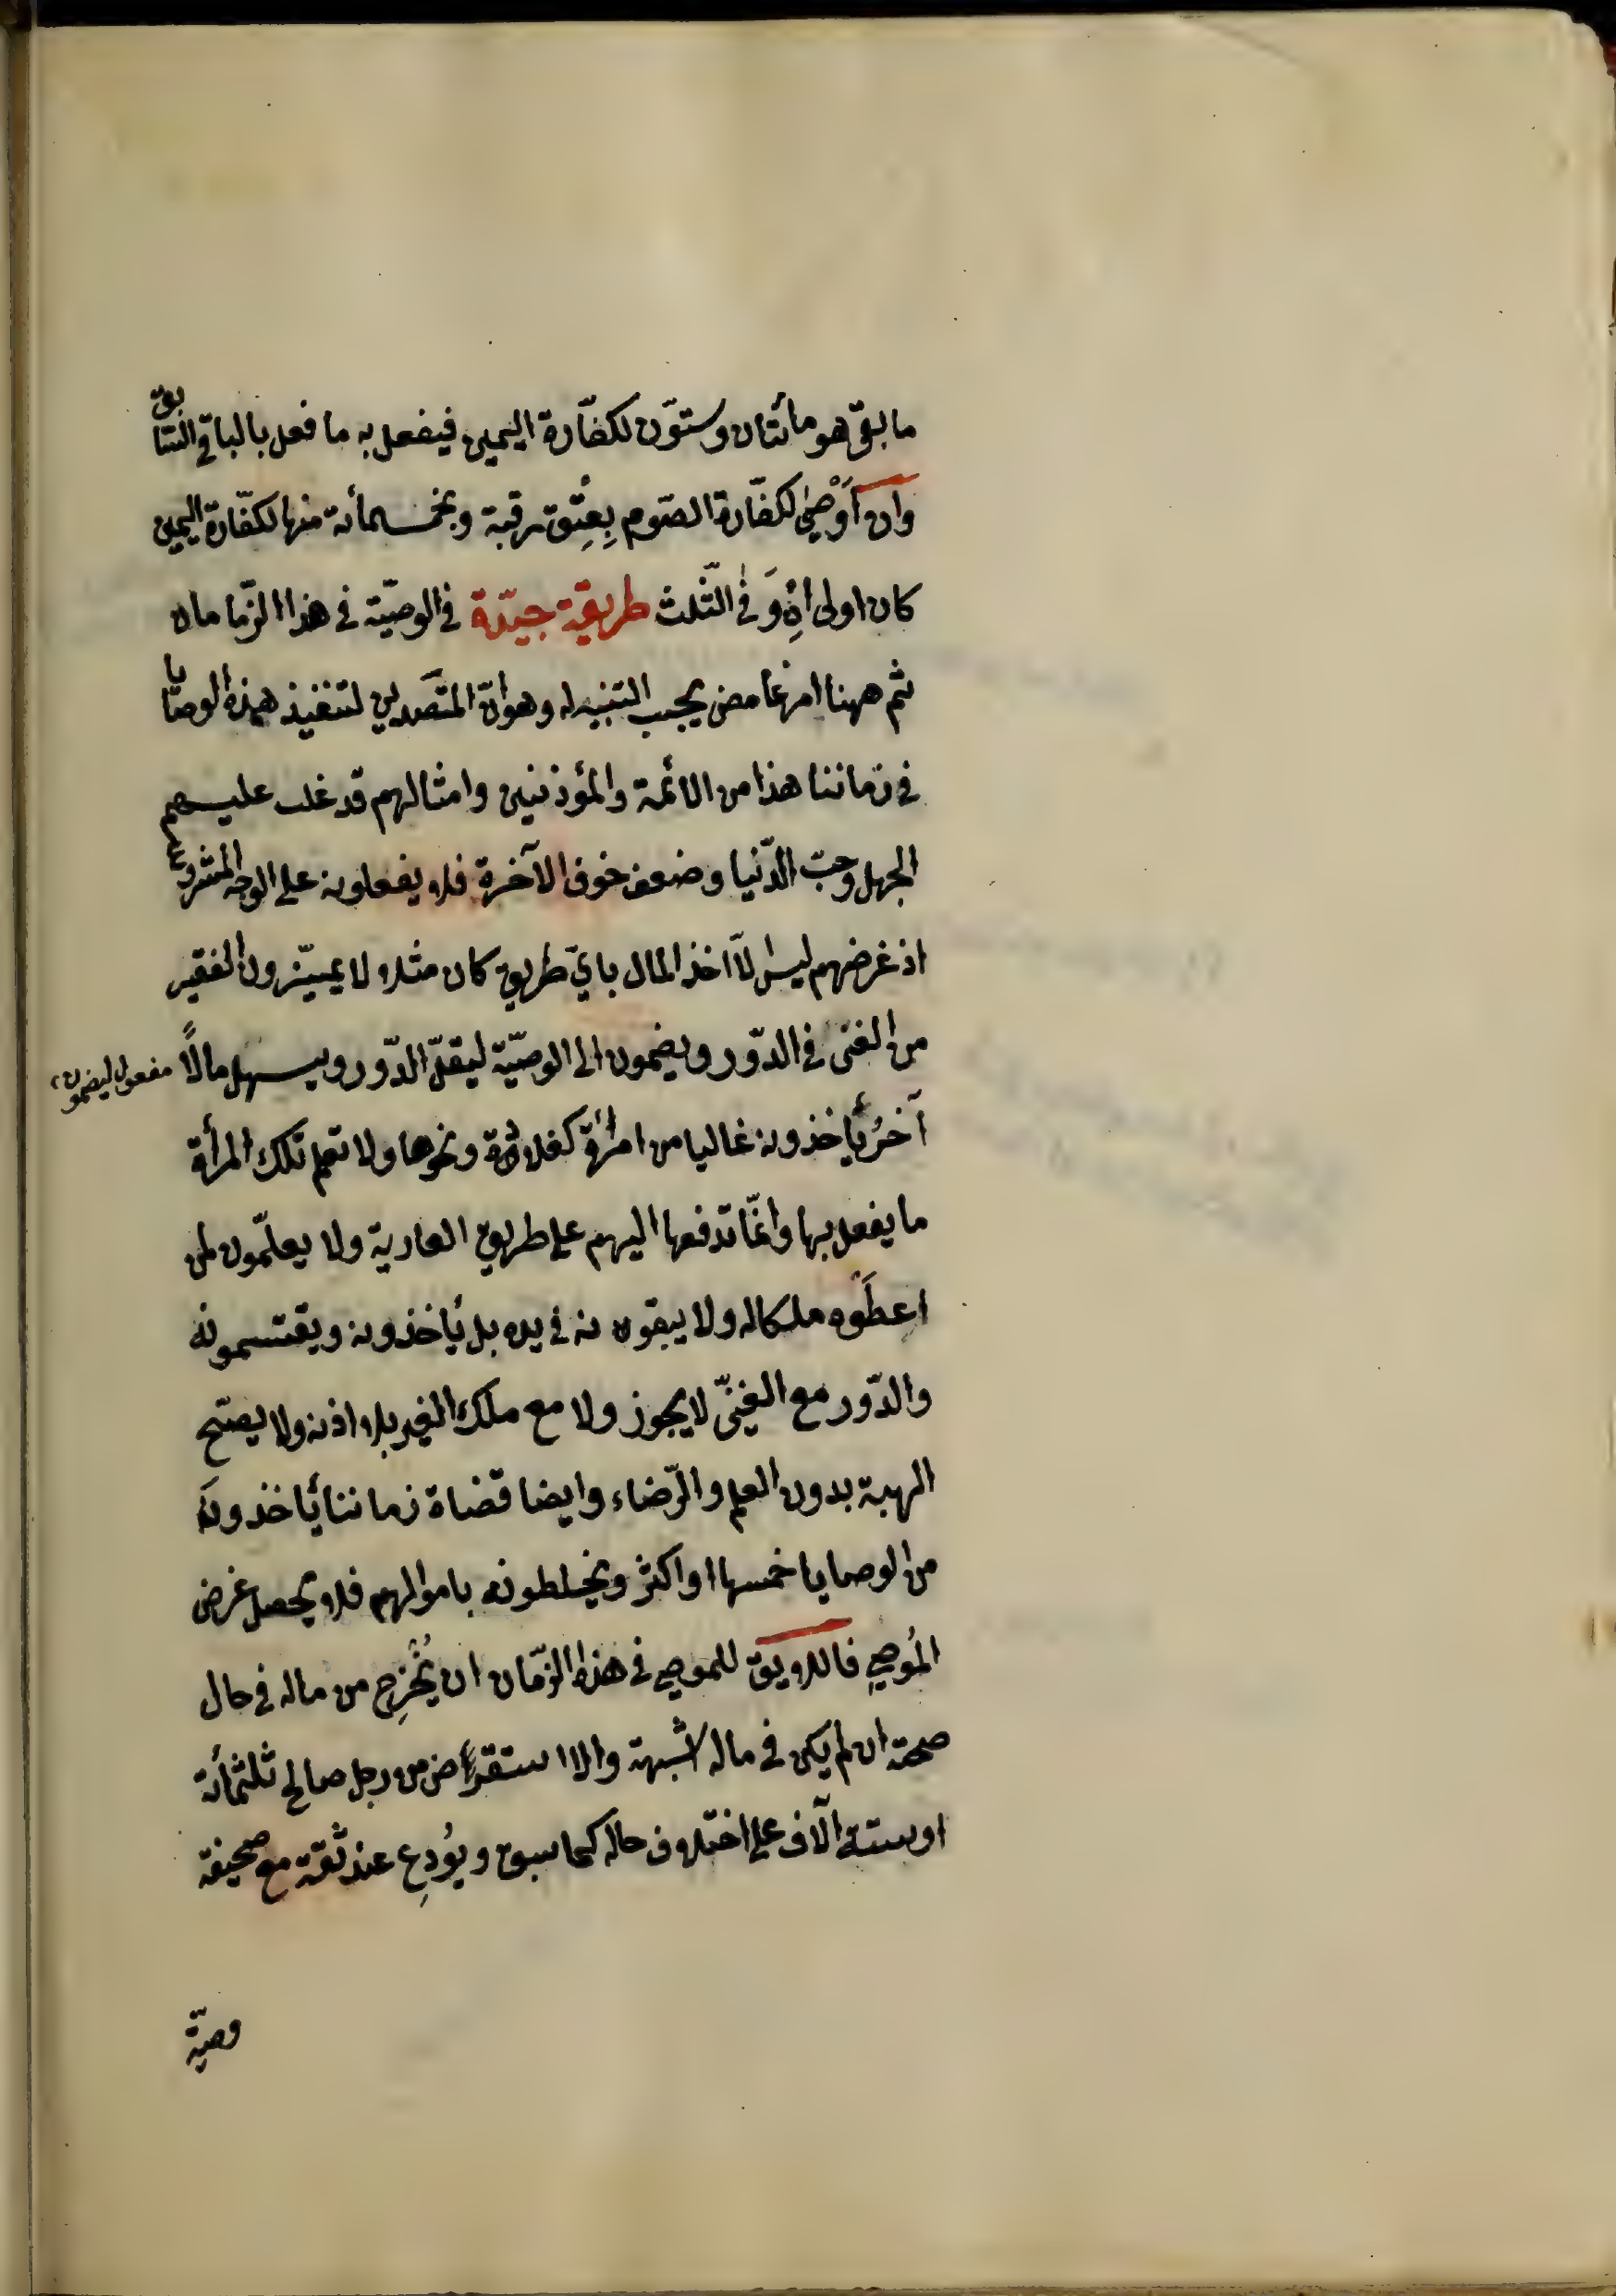 ما بقى هو مائتان وستّون لكفّارة اليمين فيفعل به ما فعل بالباقى السّابق
وان اَوْصٰى لكفّارة الصّوم بِعِتْق رقبة وبخمسمأئة منها لكفّارة اليمين
كان اولى اِنْ وَفٰى الثّلث طريقة جيّدة فى الوصيّة فى هذا الزّمامان
ثم ههنا امر غامض يجب التنبيه له وهو انّ المتصَدين لتنفيذ هذه الوصايا
فى زماننا هذا من الائمة والمؤذنين وامثالهم قد غلب عليهم
الجهل وحبّ الدّنيا وضعف خوف الآخرة فلا يفعلونه على الوجه المشروع
اذ غرضهم ليس الّا اخذ المال باىّ طريق كان مثلا لا يميّزون الفقير
من الغنى فى الدّور ويضمون الى الوصيّة ليقلّ الدّور ويسهل مالًا
مفعول ليضمون
آخرُ يأخذونه غالبا من امرأة كقلادة ونحوها ولا تعلم تلك المرأة
ما يفعل بها وانّما تدفعها اليهم على طريق العارية ولا يعلّمون لمن
اعطَوْه ملكا له ولا يبقونه فى يده بل يأخذونه ويقتسمونه
والدّور مع الغنىّ لا يجوز ولا مع ملك الغير بلا اذنه ولا يصحّ
الهبة بدون العلم والرّضاء وايضا قضاة زماننا يأخذون
من الوصايا خمسها او اكثر ويخلطونه باموالهم فلا يحصل غرض
المُوصِى فاللايق للموصى فى هذا الزّمان ان يُخْرِج من ماله فى حال
صحته ان لم يكن فى ماله شبهة والا استقراض من رجل صالح ثلثمأئة
او ستة آلاف على اختلاف حاله كما سبق ويُودِع عند ثقة مع صحيفة
وصيّة